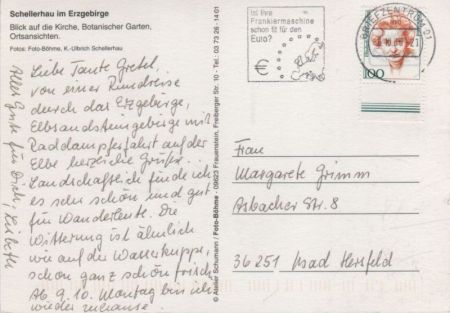 Schellerhau im Erzgebirge
Blick auf die Kirche, Botanischer Garten,
Ortsansichten.
Fotos: Foto-Böhme, K.-Ulbrich Schellerhau
Liebe Tante Gretel,
von einer Rundreise
durch das Erzgebirge,
Elbsandsteingebirge mit
Raddampferfahrt auf der
Elbe herzliche Grüße.
Landschaftlich finde ich
es sehr schön und gut
für Wanderleute. Die
Witterung ist ähnlich
wie auf der Wasserkuppe,
schon ganz schön frisch
Ab 9.10. Montag bin ich
wieder zuhause.
Alles Gute für Dich,
© Atelier Schumann / Foto-Böhme - 09623 Frauenstein, Freiberger Str. 10 - Tel.: 03 73 26 14 01
Ist Ihre
Frankiermaschine
schon fit für den
Euro?
€
BRIEFZENTRUM 01
100
Frau
Margarete Grimm
Asbacher Str. 8
36251 Bad Hersfeld